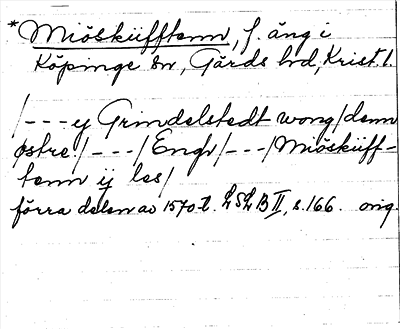 *Miöskiifftenn, f. äng i
Köpinge sn, Gärds hd, Krist. l.
/---ej Grindelstedt wong/denn
østre/---/Engr/---/Miöskiiff-
tenn ij les/
förra delen av 1570-t. LSLB II, s. 166. orig.